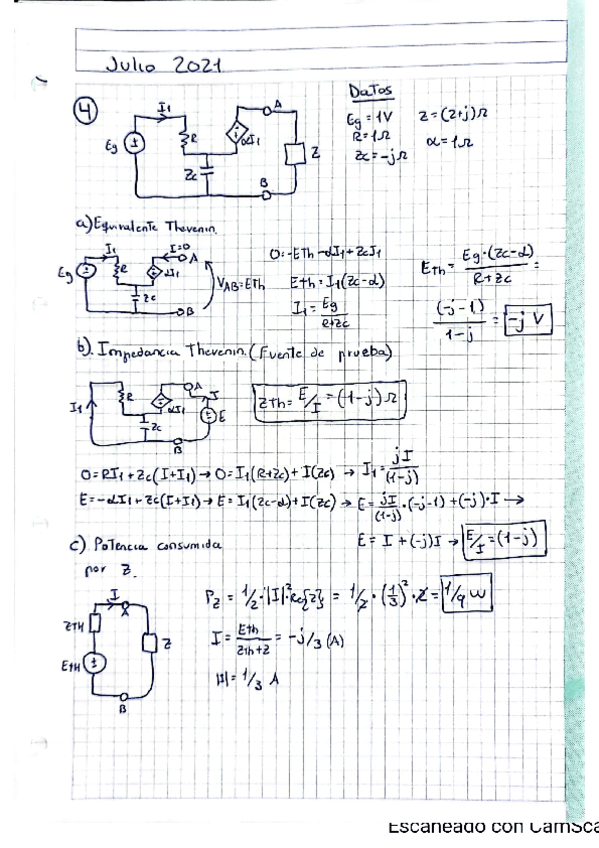 Julio 2021
4
Datos
Eg = 1V   Z = (2+j)Ω
R = 1Ω   α = 1Ω
Zc = -jΩ
I1   A
Eg   R   αI1   Z
Zc
B
a) Equivalente Thevenin.
I1   I=0   A
Eg   R   αI1   VAB = ETh
Zc   B
0 = -ETh - αI1 + ZcI1
Eth = I1(Zc-α)
I1 = Eg/(R+Zc)
Eth = Eg·(Zc-α)/(R+Zc) =
(-j-1)/(1-j) = -j V
b). Impedancia Thevenin. (Fuente de prueba)
I1   R   αI1   A   I   E
Zc   B
Zth = E/I = (1-j)Ω
0 = RI1 + Zc(I+I1) → 0 = I1(R+Zc) + I(Zc) → I1 = jI/(1-j)
E = -αI1 + Zc(I+I1) → E = I1(Zc-α) + I(Zc) → E = jI/(1-j)·(-j-1) + (-j)·I →
E = I + (-j)I → E/I = (1-j)
c) Potencia consumida
por Z.
I   A
ZTH   Z
ETH
B
PZ = 1/2·|I|²·Re{Z} = 1/2·(1/3)²·2 = 1/9 W
I = Eth/(Zth+Z) = -j/3 (A)
|I| = 1/3 A
Escaneado con CamSca